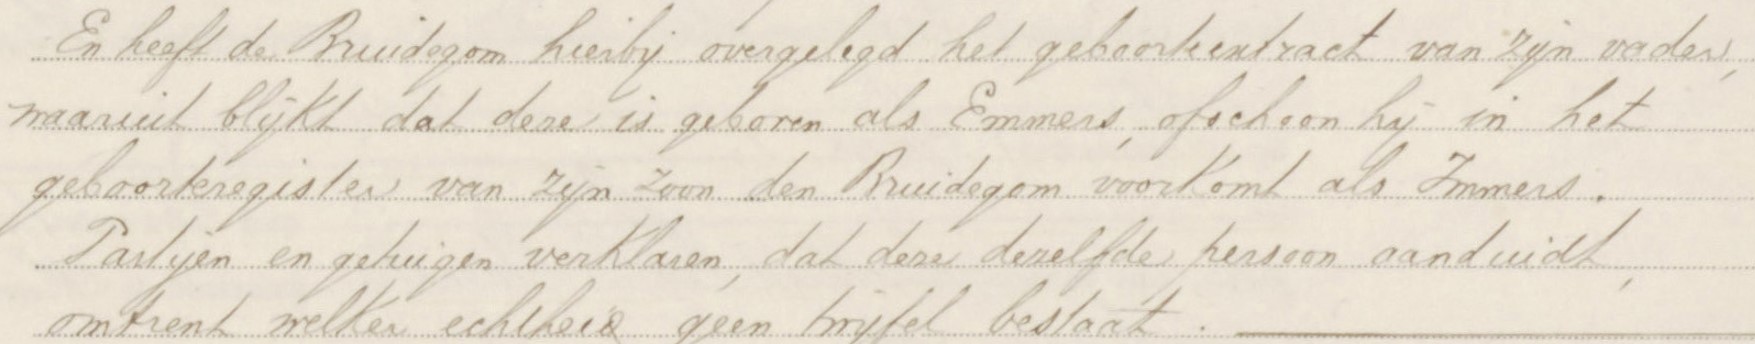 En heeft de Bruidegom hierbij overgelegd het geboorteextract van zijn vader,
waaruit blijkt dat deze is geboren als Emmers, ofschoon hij in het
geboorteregister van zijn zoon den Bruidegom voorkomt als Immers.
Partijen en getuigen verklaren, dat deze dezelfde persoon aanduidt,
omtrent welker echtheid geen twijfel bestaat.